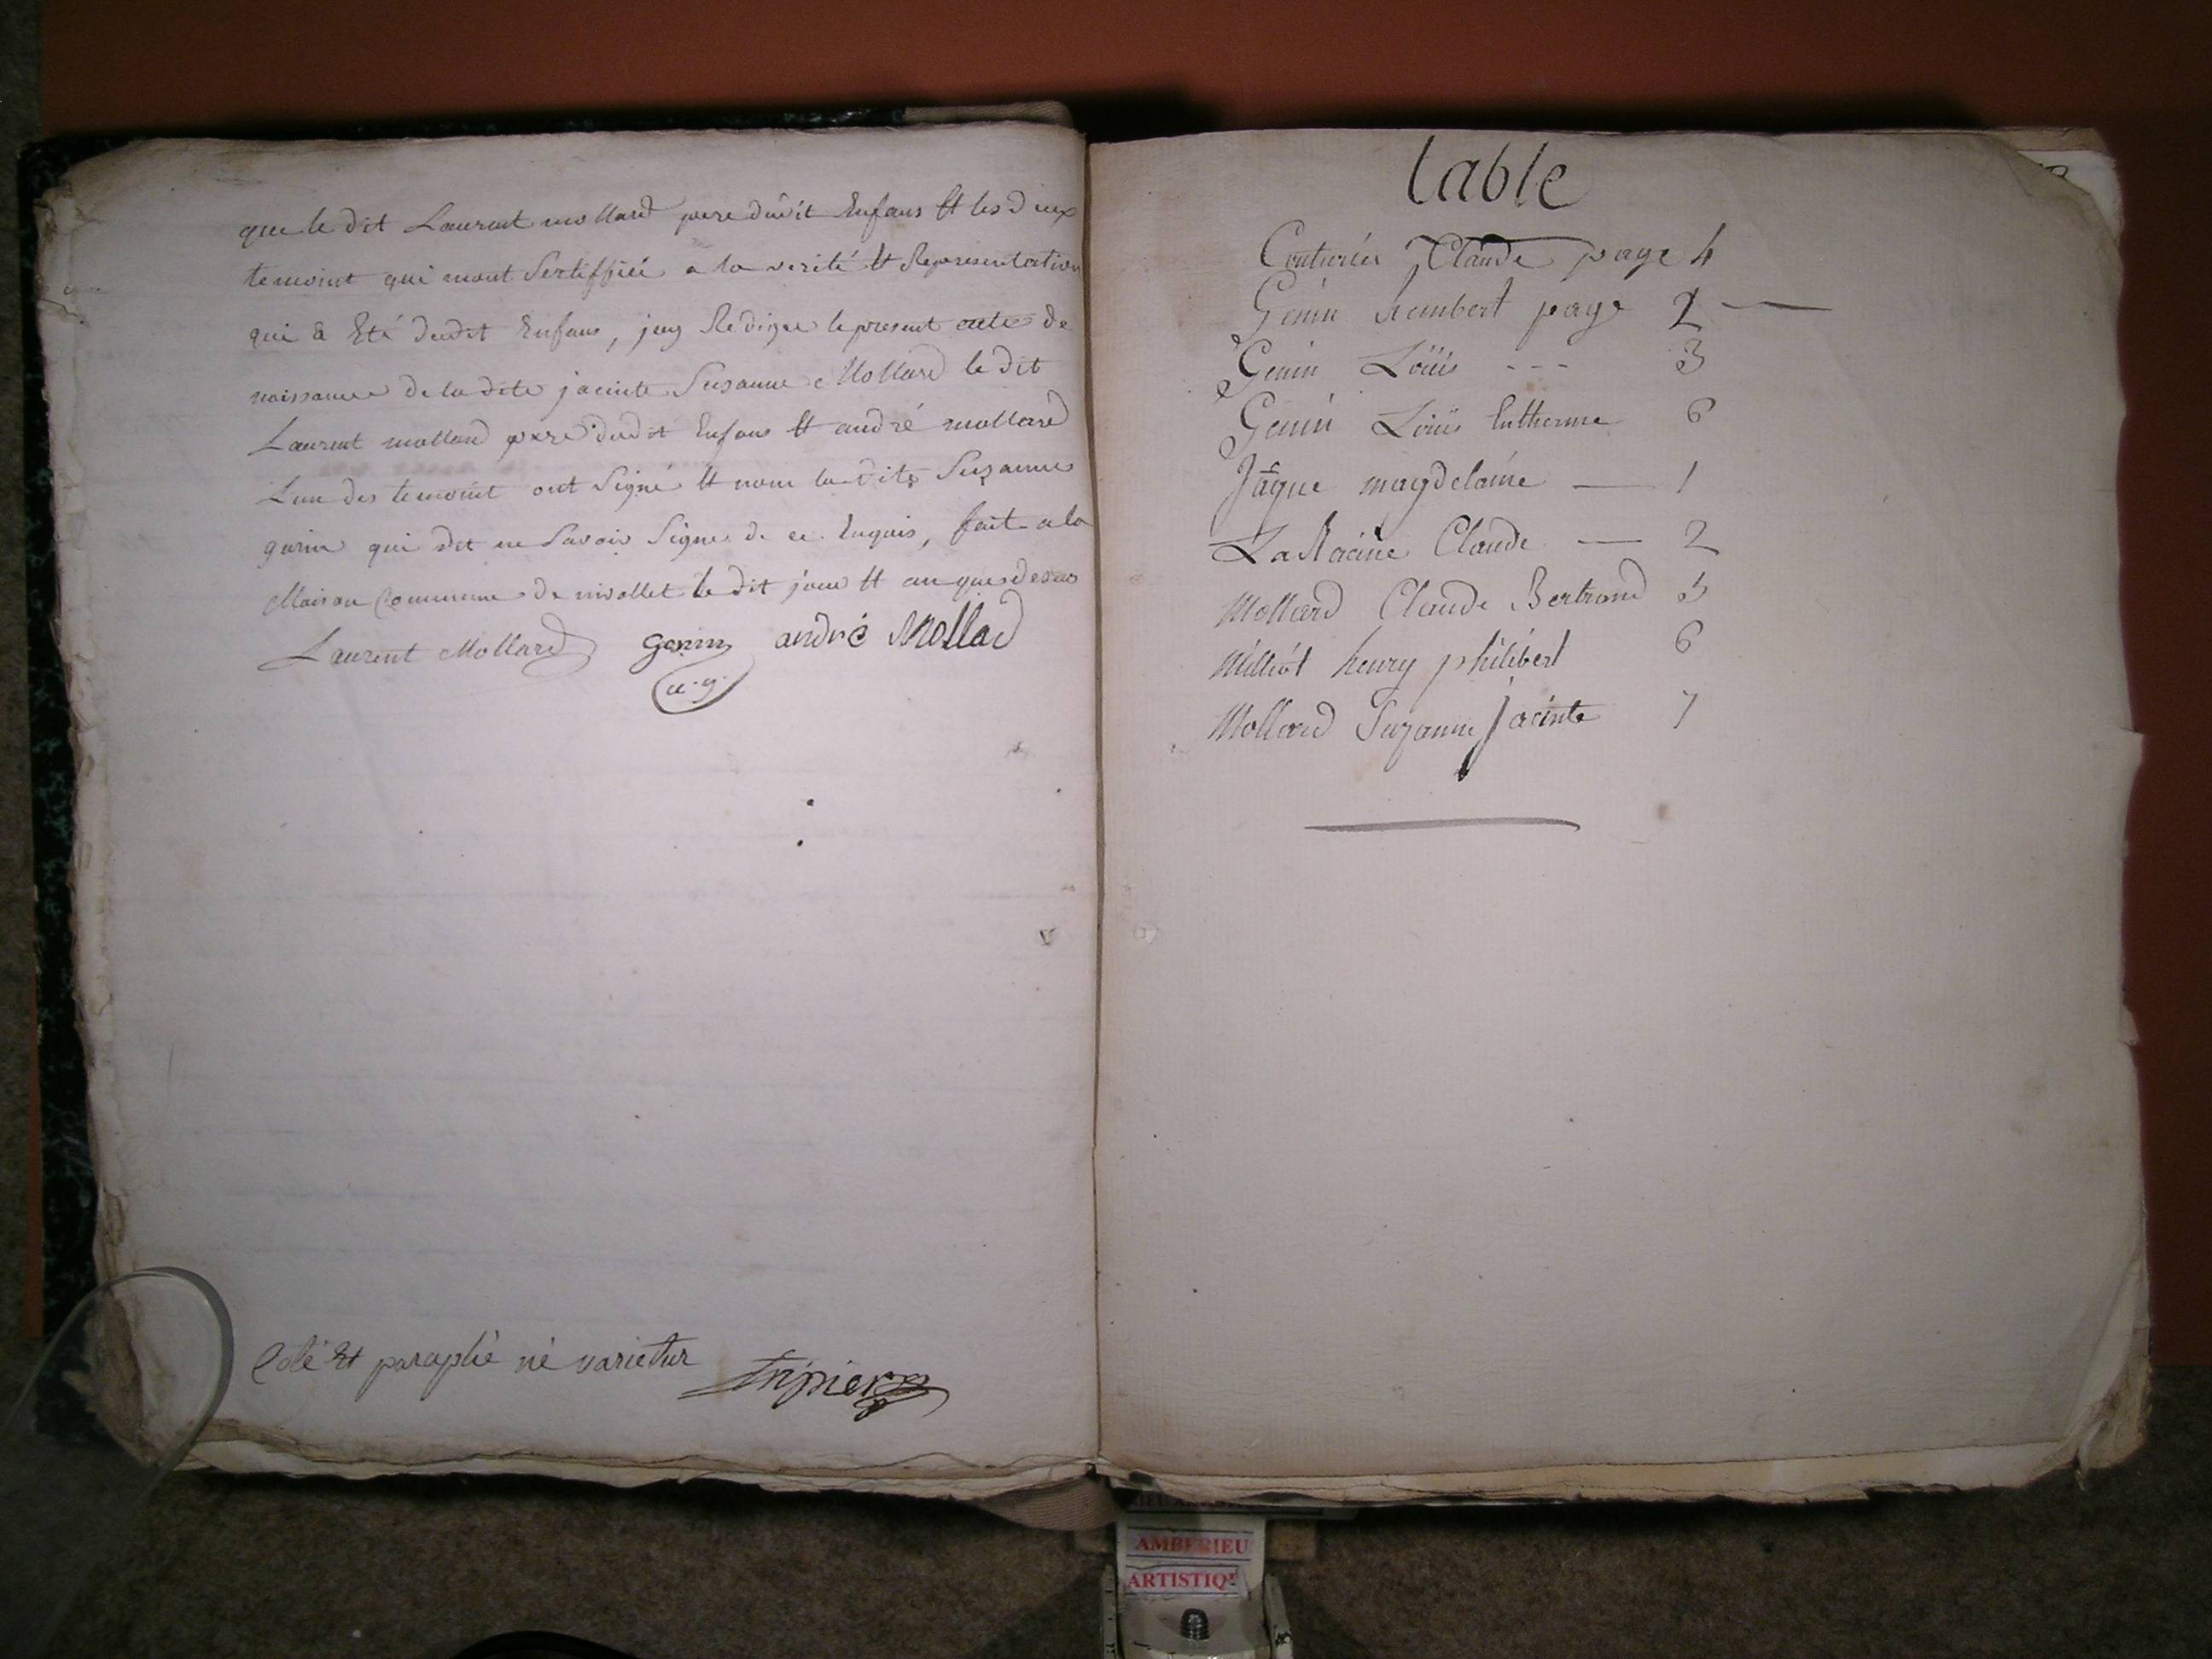 que le dit Laurent mollard pere dudit Enfans Et les deux
temoint qui mont Sertiffiée a la verité Et Representation
qui a Eté dudit Enfans, jay Rediger le present acte de
naissance de la dite jacinte Susanne Mollard le dit
Laurent mollard pere dudit Enfans Et andré mollard
L'un des temoint ont Signé Et nom la dite Suzanne
gorin qui dit ne Savoir Signe de ce Enquis, fait a la
Maison Commune de nivollet le dit jour Et an que desus
Laurent Mollard andré Mollard
Coté Et paraphé né varietur
table
Couturier Claude page 4
Genin hembert page 2
Genin Loüis --- 3
Genin Loüis 6
Jâque magdelaine — 1
La Racine Claude — 2
Mollard Claude Bertrand 5
Milliot henry philibert 6
Mollard Suzanne Jacinte 7
AMBERIEU
ARTISTIQ